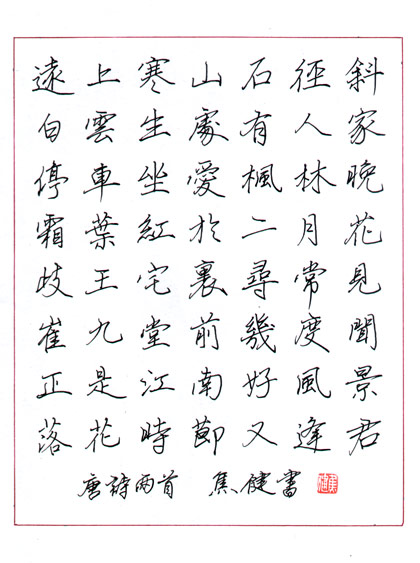 遠上寒山石徑斜
白雲生處有人家
停車坐愛楓林晚
霜葉紅於二月花
歧王宅裏尋常見
崔九堂前幾度聞
正是江南好風景
落花時節又逢君
唐詩两首 焦健書